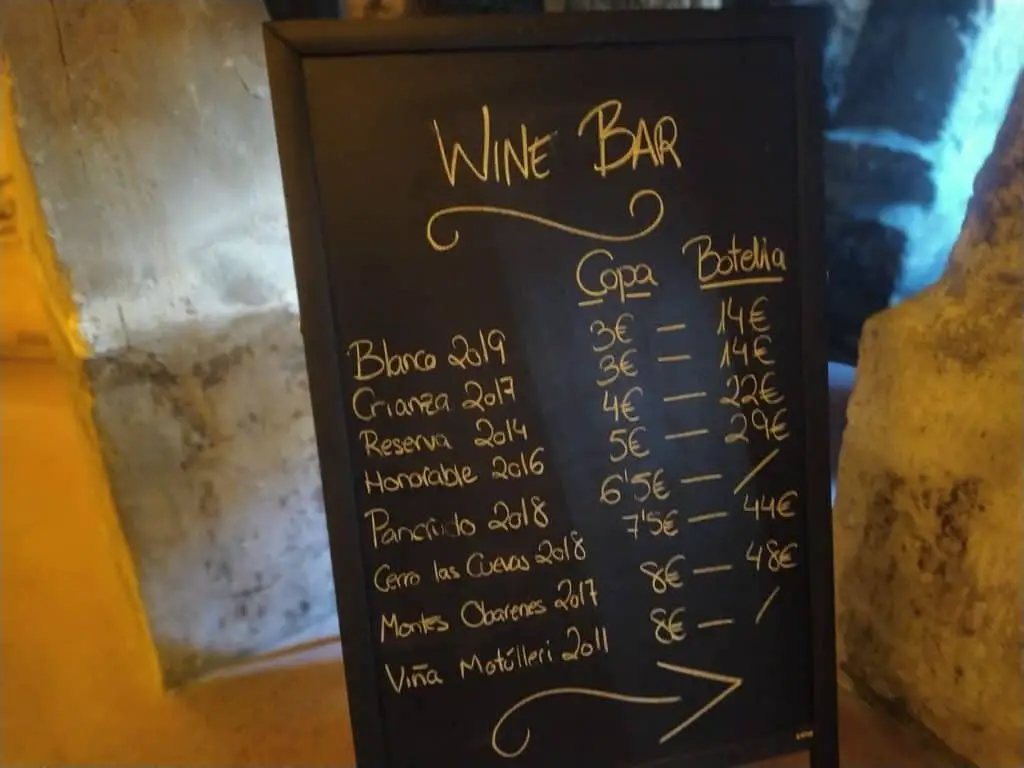 WINE BAR
Copa Botella
Blanco 2019 3€ — 14€
Crianza 2017 3€ — 14€
Reserva 2014 4€ — 22€
Honorable 2016 5€ — 29€
Pancrudo 2018 6'5€ — /
Cerro las Cuevas 2018 7'5€ — 44€
Montes Obarenes 2017 8€ — 48€
Viña Motúlleri 2011 8€ — /